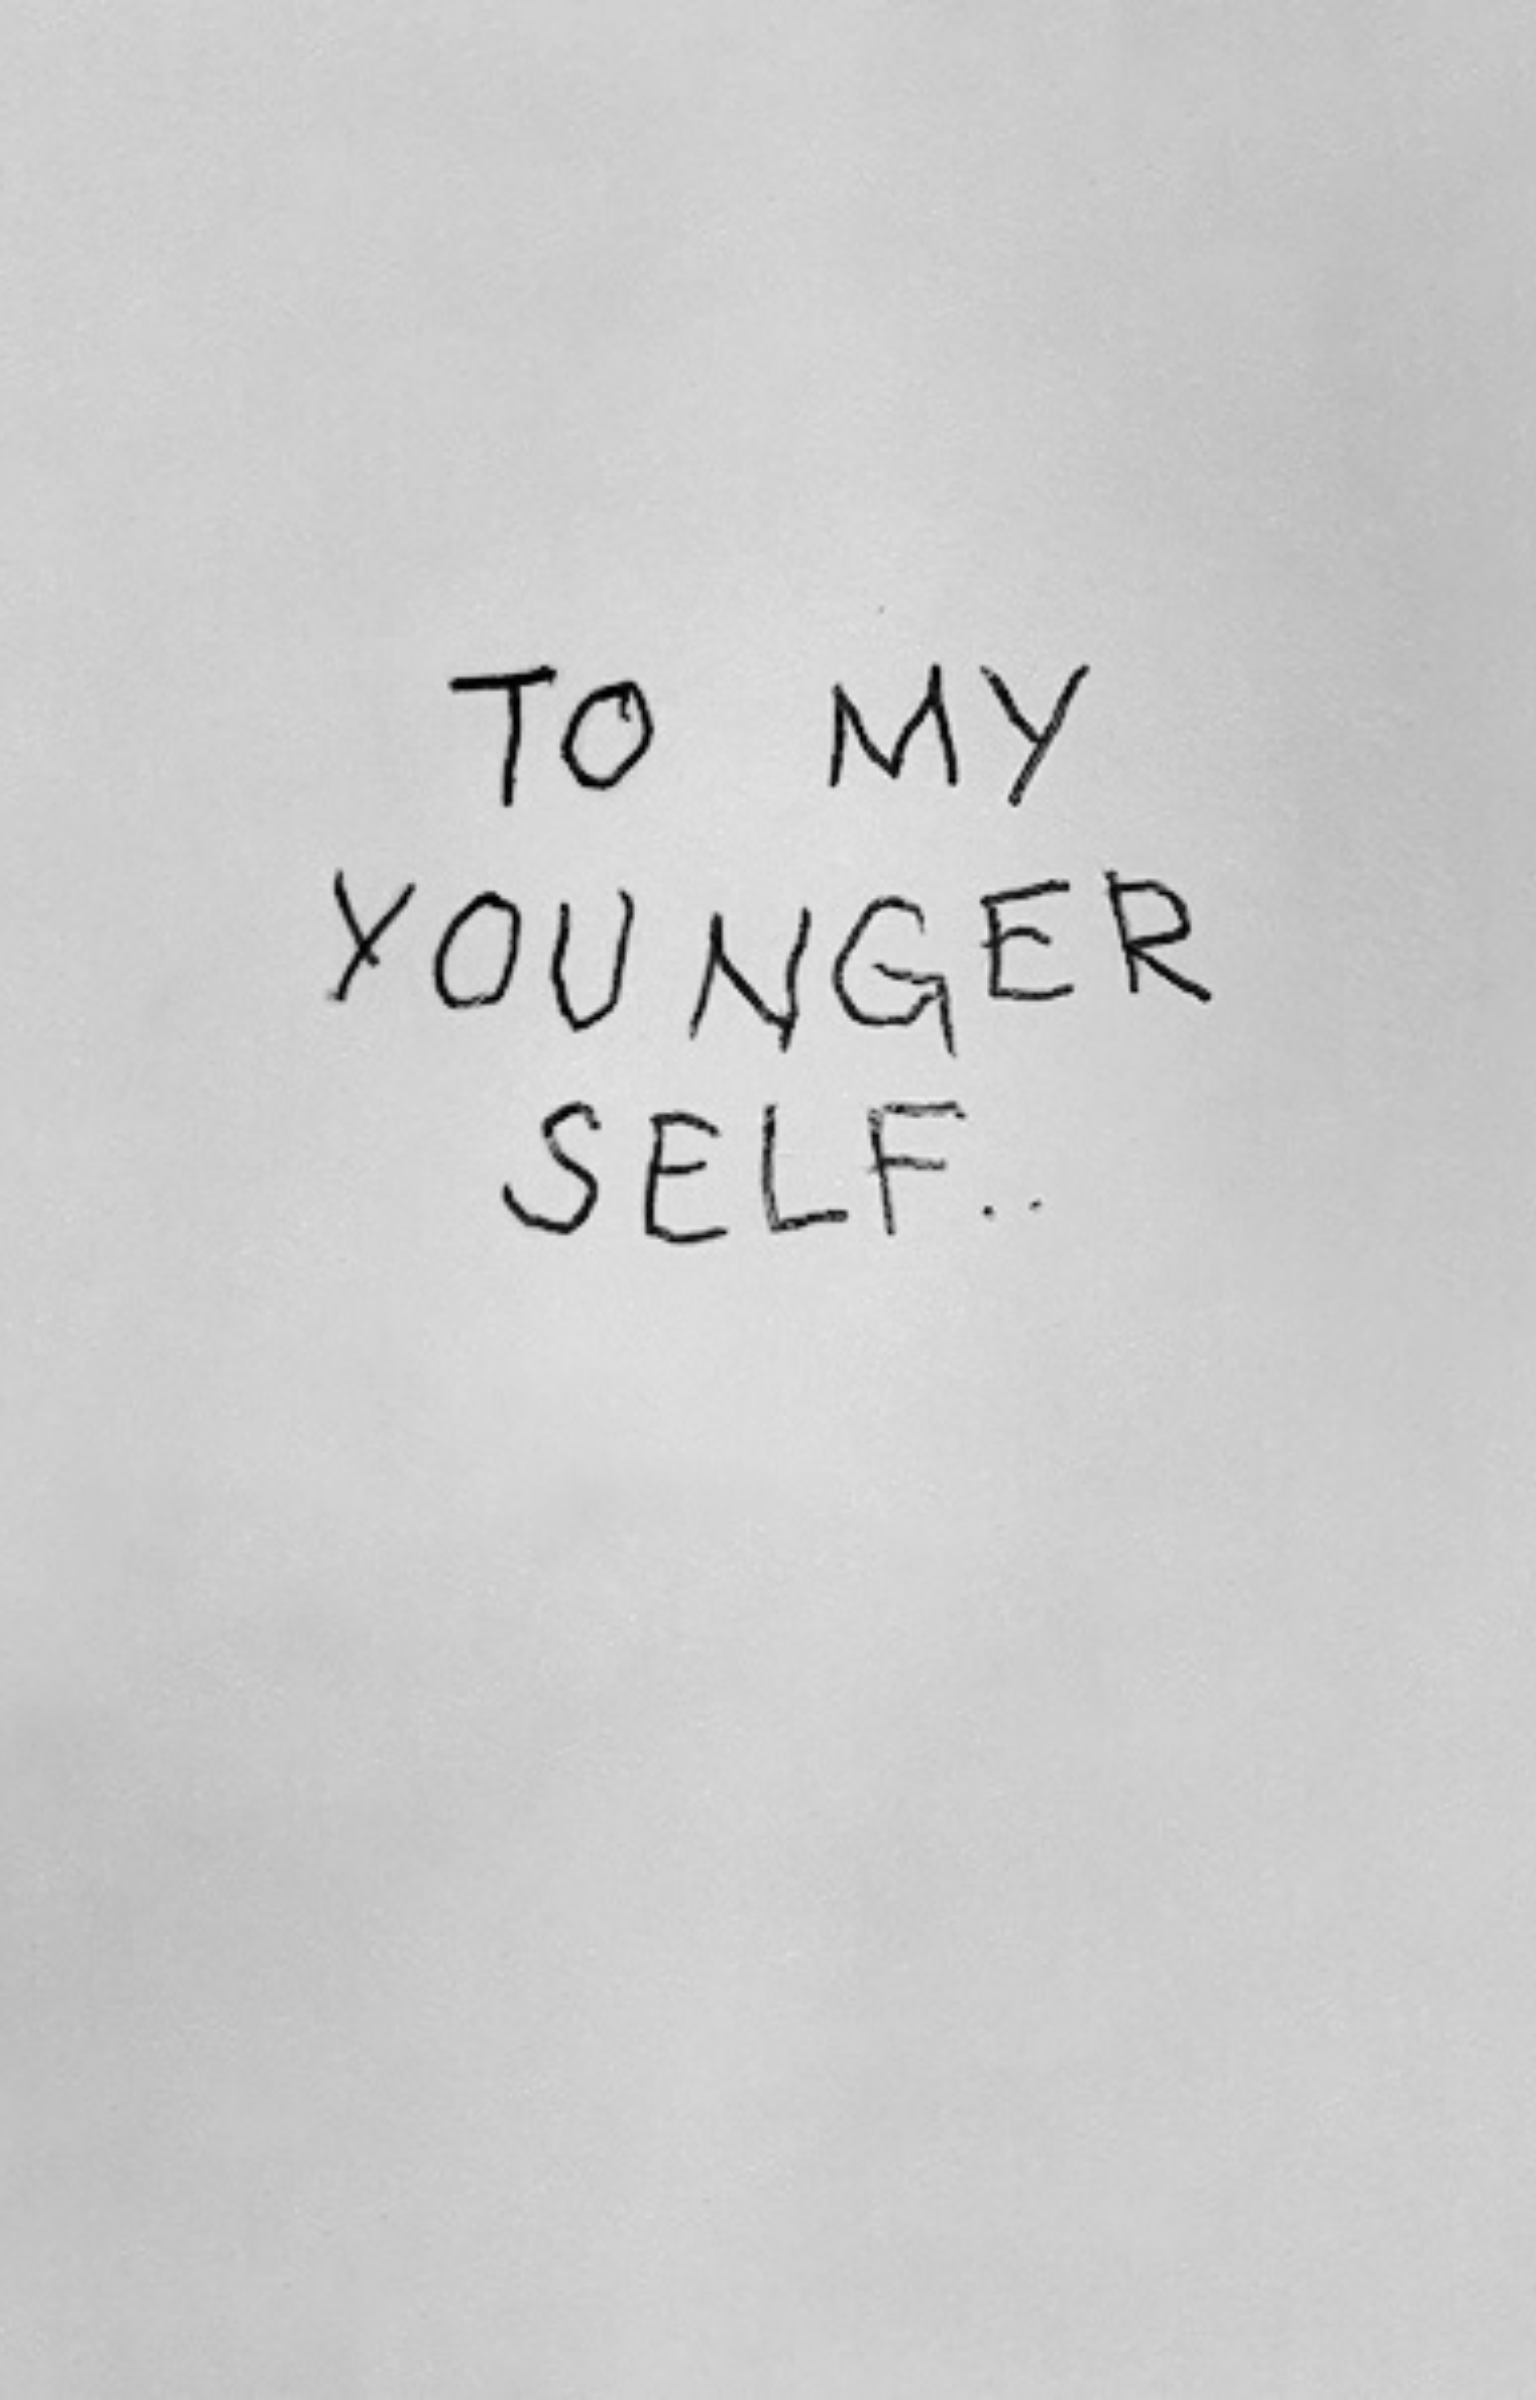 TO MY
YOUNGER
SELF..